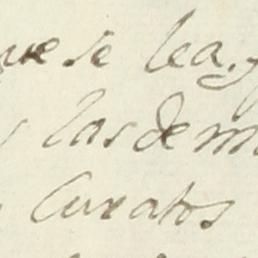 que se lea. y
las dem
Curatos